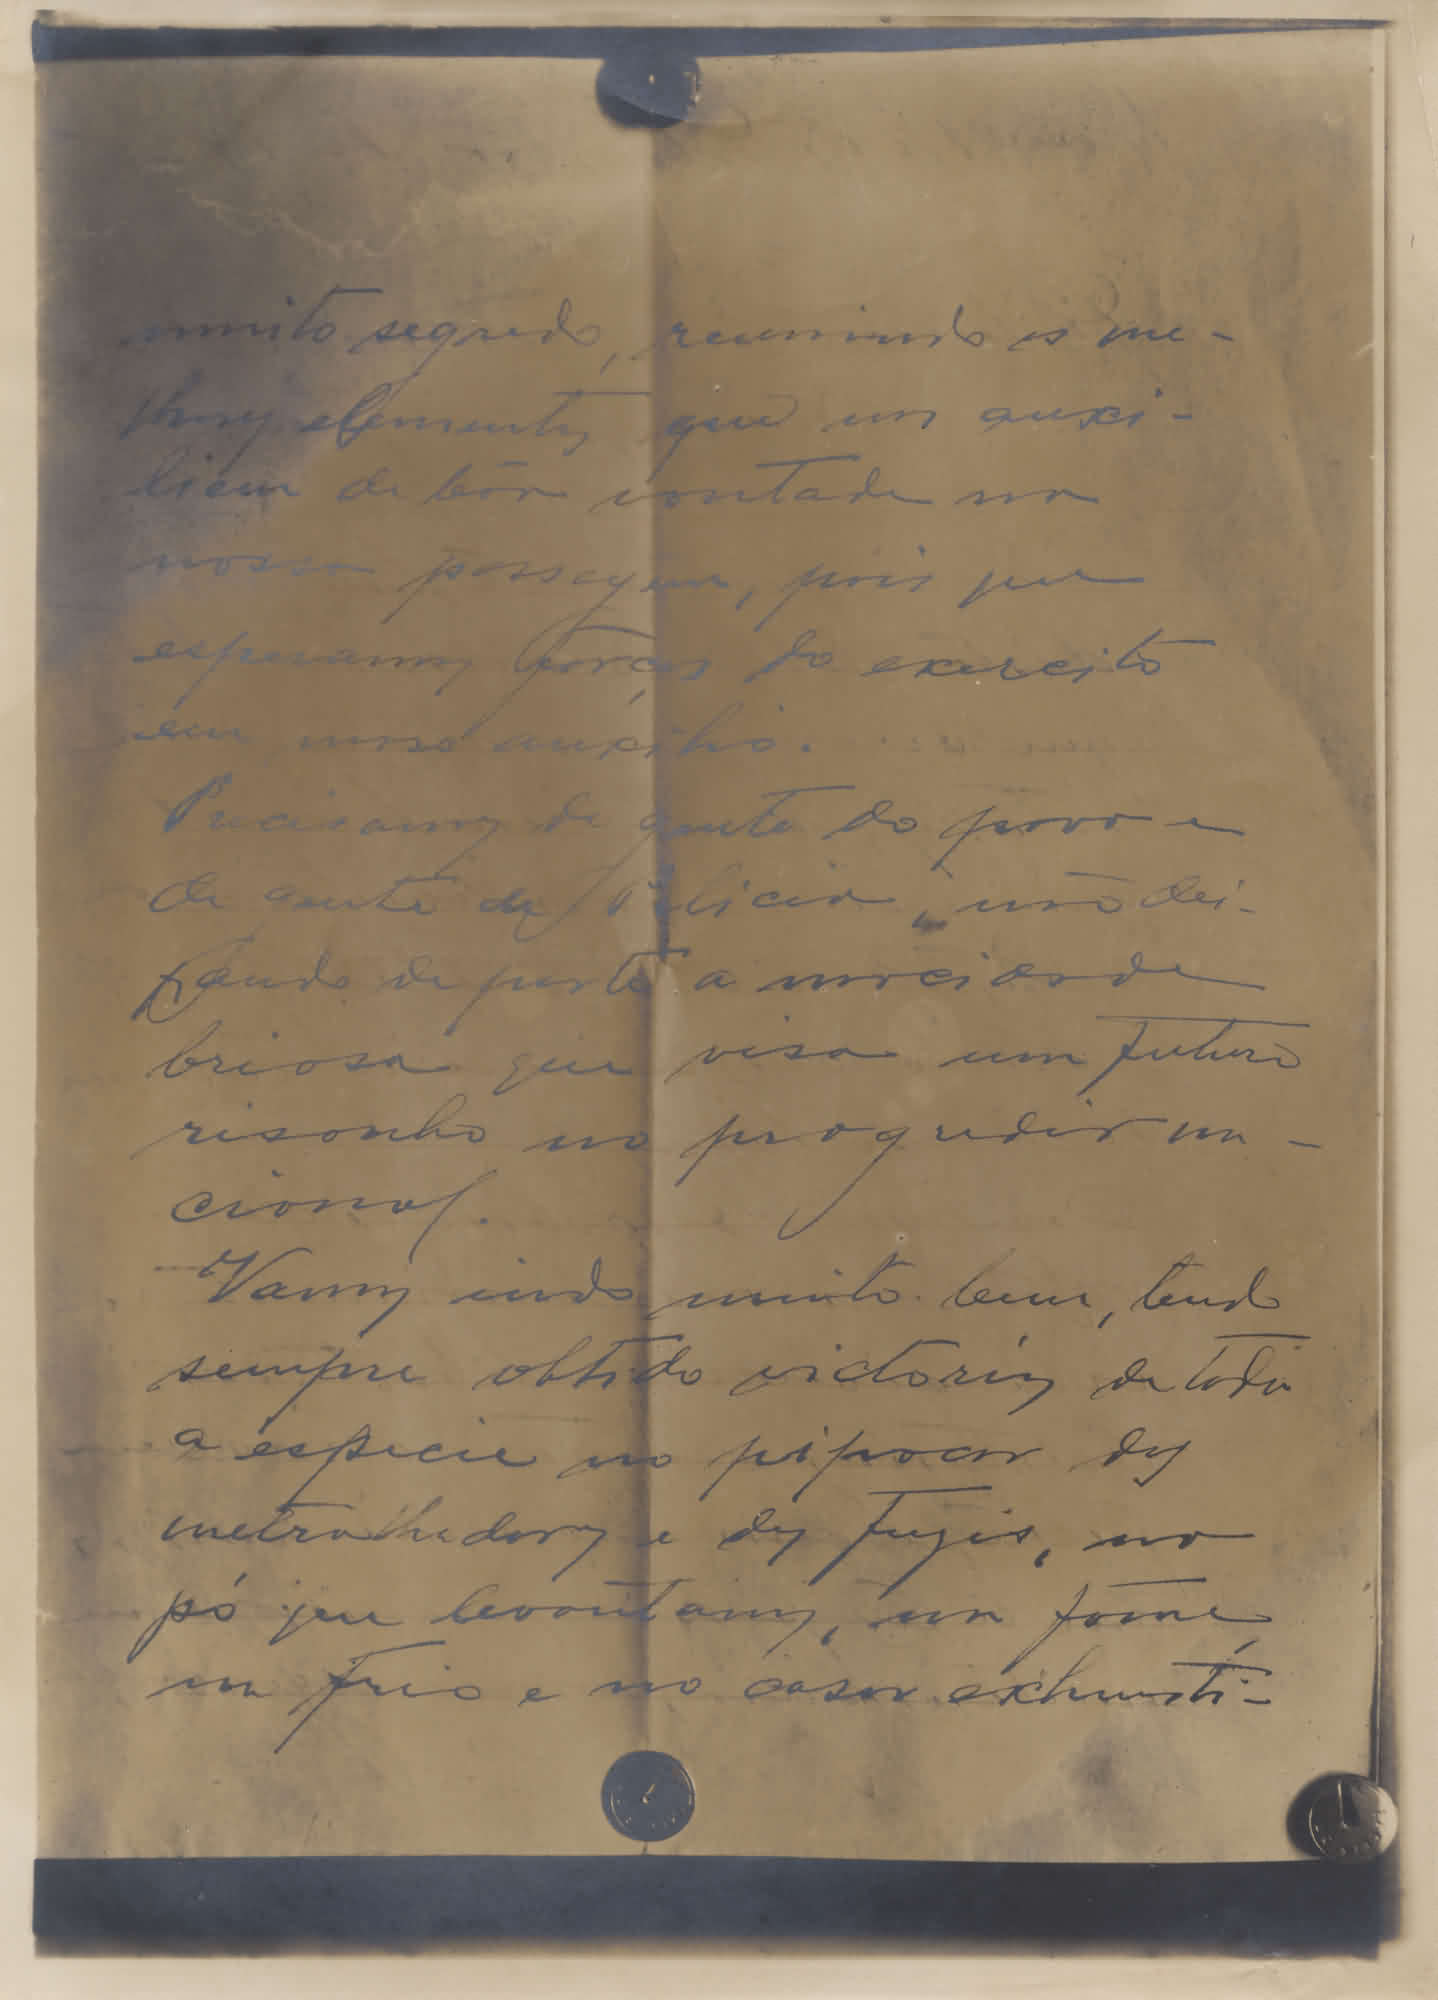 muito segredo, reunindo os me-
lhores elementos que nos auxi-
liem de bôa vontade na
nossa passagem, pois que
esperamos forças do exercito
em nosso auxilio.
Precisamos de gente do povo e
de gente da Policia, não dei-
xando de parte a mocidade
briosa que visa um futuro
risonho no progredir na-
cional.
Vamos indo muito bem, tendo
sempre obtido victorias de toda
a especie no pipocar das
metralhadoras e dos fuzis, no
pó que levantamos, na fome,
no frio e no cansar exhausti-